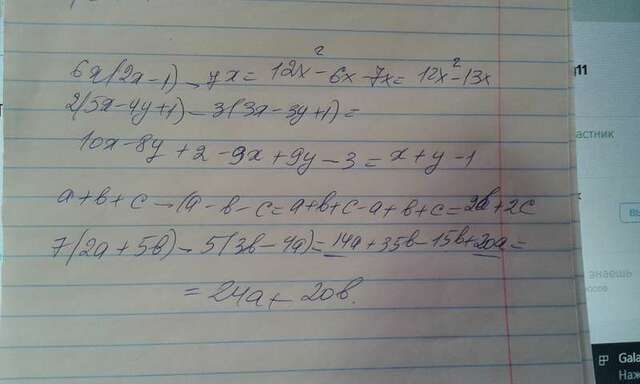 6x(2x-1)-7x=12x²-6x-7x=12x²-13x
2(5x-4y+1)-3(3x-3y+1)=
10x-8y+2-9x+9y-3=x+y-1
a+b+c-(a-b-c=a+b+c-a+b+c=2b+2c
7(2a+5b)-5(3b-4a)=14a+35b-15b+20a=
=24a+20b.
11
астник
знаешь
Gala
Наж